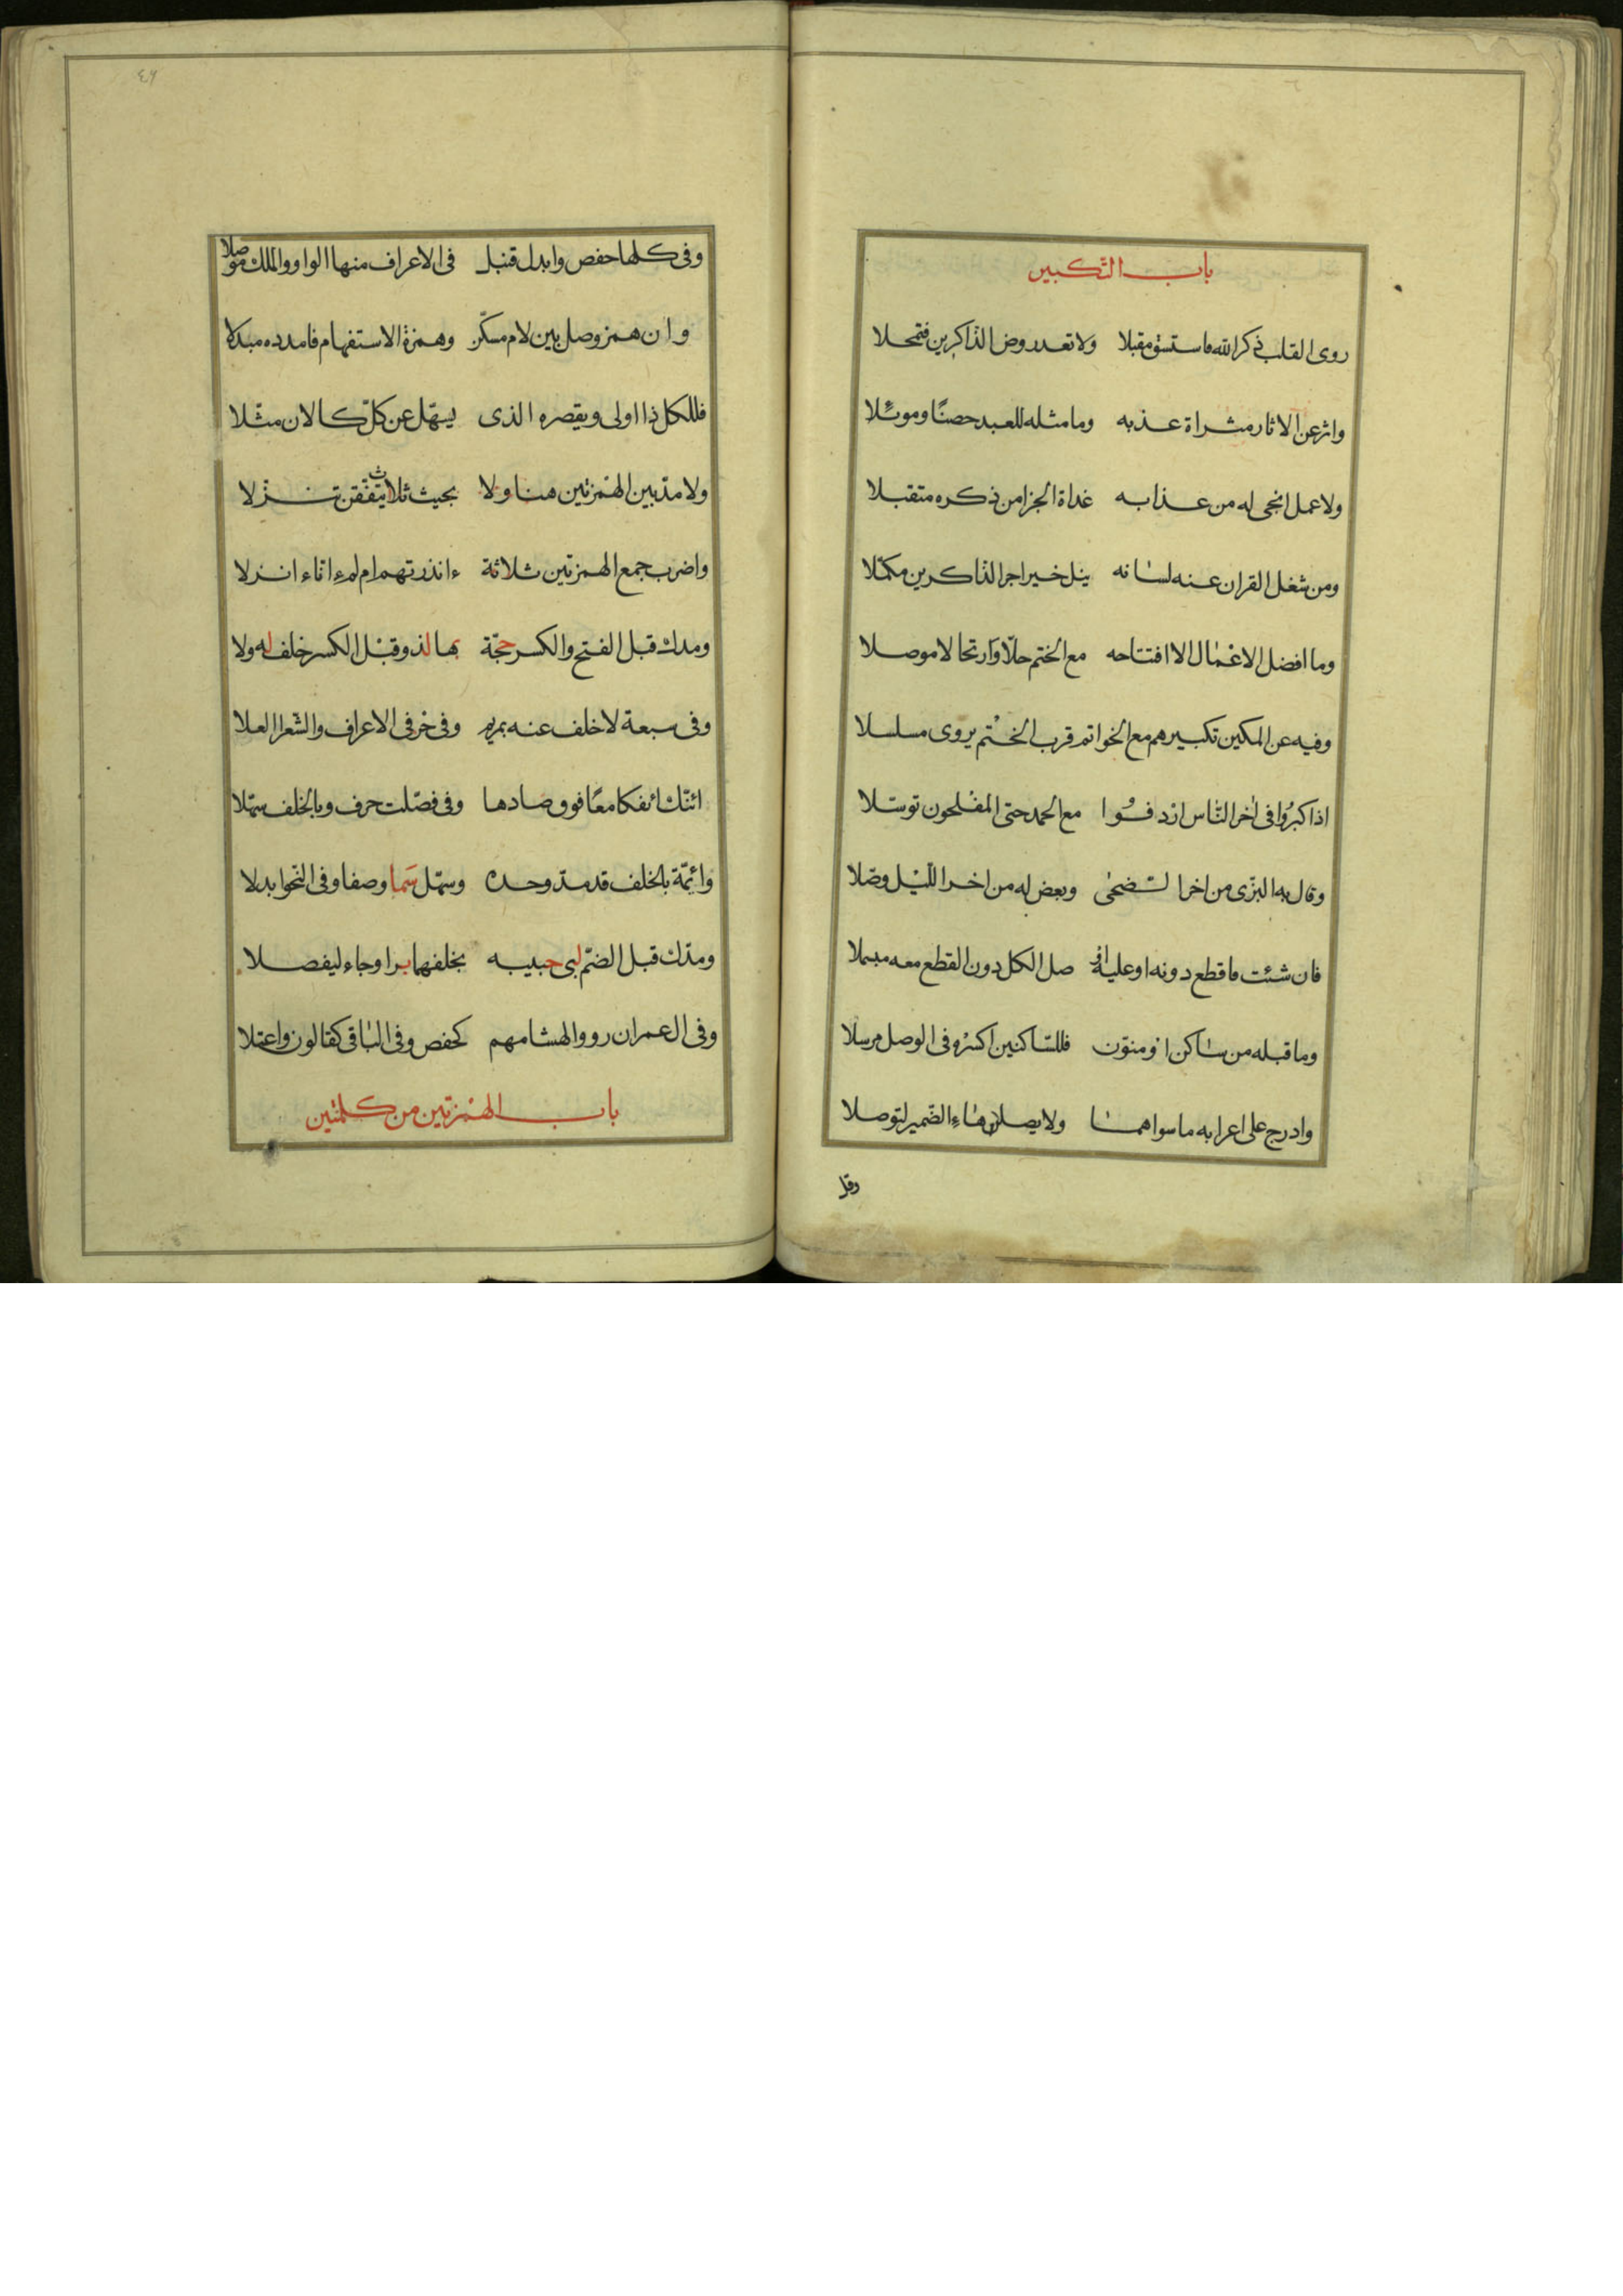 باب التكبير
روى القلب ذكر الله فاستسق مقبلا ولا تعد روض الذاكرين فتمحلا
واثر عن الاثار مثراة عذبه وما مثله للعبد حصنًا وموئلا
ولا عمل انجى له من عذابه غداة الجزا من ذكره متقبلا
ومن شغل القران عنه لسانه ينل خير اجر الذاكرين مكمّلا
وما افضل الاعمال الا افتتاحه مع الختم حلّا وارتحالا موصلا
وفيه عن المكين تكبيرهم مع الخواتم قرب الختم يروى مسلسلا
اذا كبرُوا فى اخر النّاس اردفُوا مع الحمد حتى المفلحون توسّلا
وقال به البزّى من اخر الضّحى وبعض له من اخر اللّيل وصّلا
فان شئت فاقطع دونه او عليه او صل الكل دون القطع معه مبسملا
وما قبله من ساكن او منوّن فللسّاكنين اكسرْه فى الوصل مرسلا
وادرج على اعرابه ما سواهما ولا يصلن هاء الضّمير لتوصلا
وقل
٤٦
وفى كلها حفص وابدل قنبل فى الاعراف منها الواو والملك موصلا
وان همز وصل بين لام مسكّن وهمزة الاستفهام فامدده مبدلا
فللكل ذا اولى ويقصره الذى يسهّل عن كلّ كالان مثّلا
ولا مدّ بين الهمزتين هنا ولا بحيث ثلاث يتّفقن تنزّلا
واضرب جمع الهمزتين ثلاثة ءانذرتهم ام لم ءانا ءانزلا
ومدك قبل الفتح والكسر حجّة بها لذ وقبل الكسر خلف له ولا
وفى سبعة لا خلف عنه بمريم وفى حرفى الاعراف والشّعرا العلا
ائنّك ائفكا معًا فوق صادها وفى فصّلت حرف وبالخلف سهّلا
وائمّة بالخلف قد مدّ وحده وسهّل سَما وصفا وفى النّحو ابدلا
ومدّك قبل الضمّ لبى حبيبه بخلفهما برا وجاء ليفصلا
وفى ال عمران رووا لهشامهم كحفص وفى الباقى كقالون واعتلا
باب الهمزتين من كلمتين